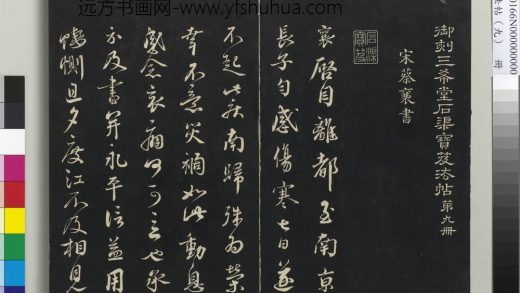 远方书画网-www.yfshuhua.com
御刻三希堂石渠寶笈法帖第九冊
宋蔡襄書
石渠寶笈
襄啓自離都至南京
長子勻感傷寒七日遂
不起此疾南歸殊爲榮
幸不意災禍如此動息
感念哀痛何可言也承
示及書并永平信益用
悽惻旦夕度江不及相見
帖（九）冊